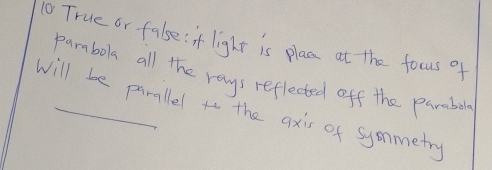 10 True or false: if light is place at the focus of
parabola all the rays reflected off the parabola
will be parallel to the axis of symmetry